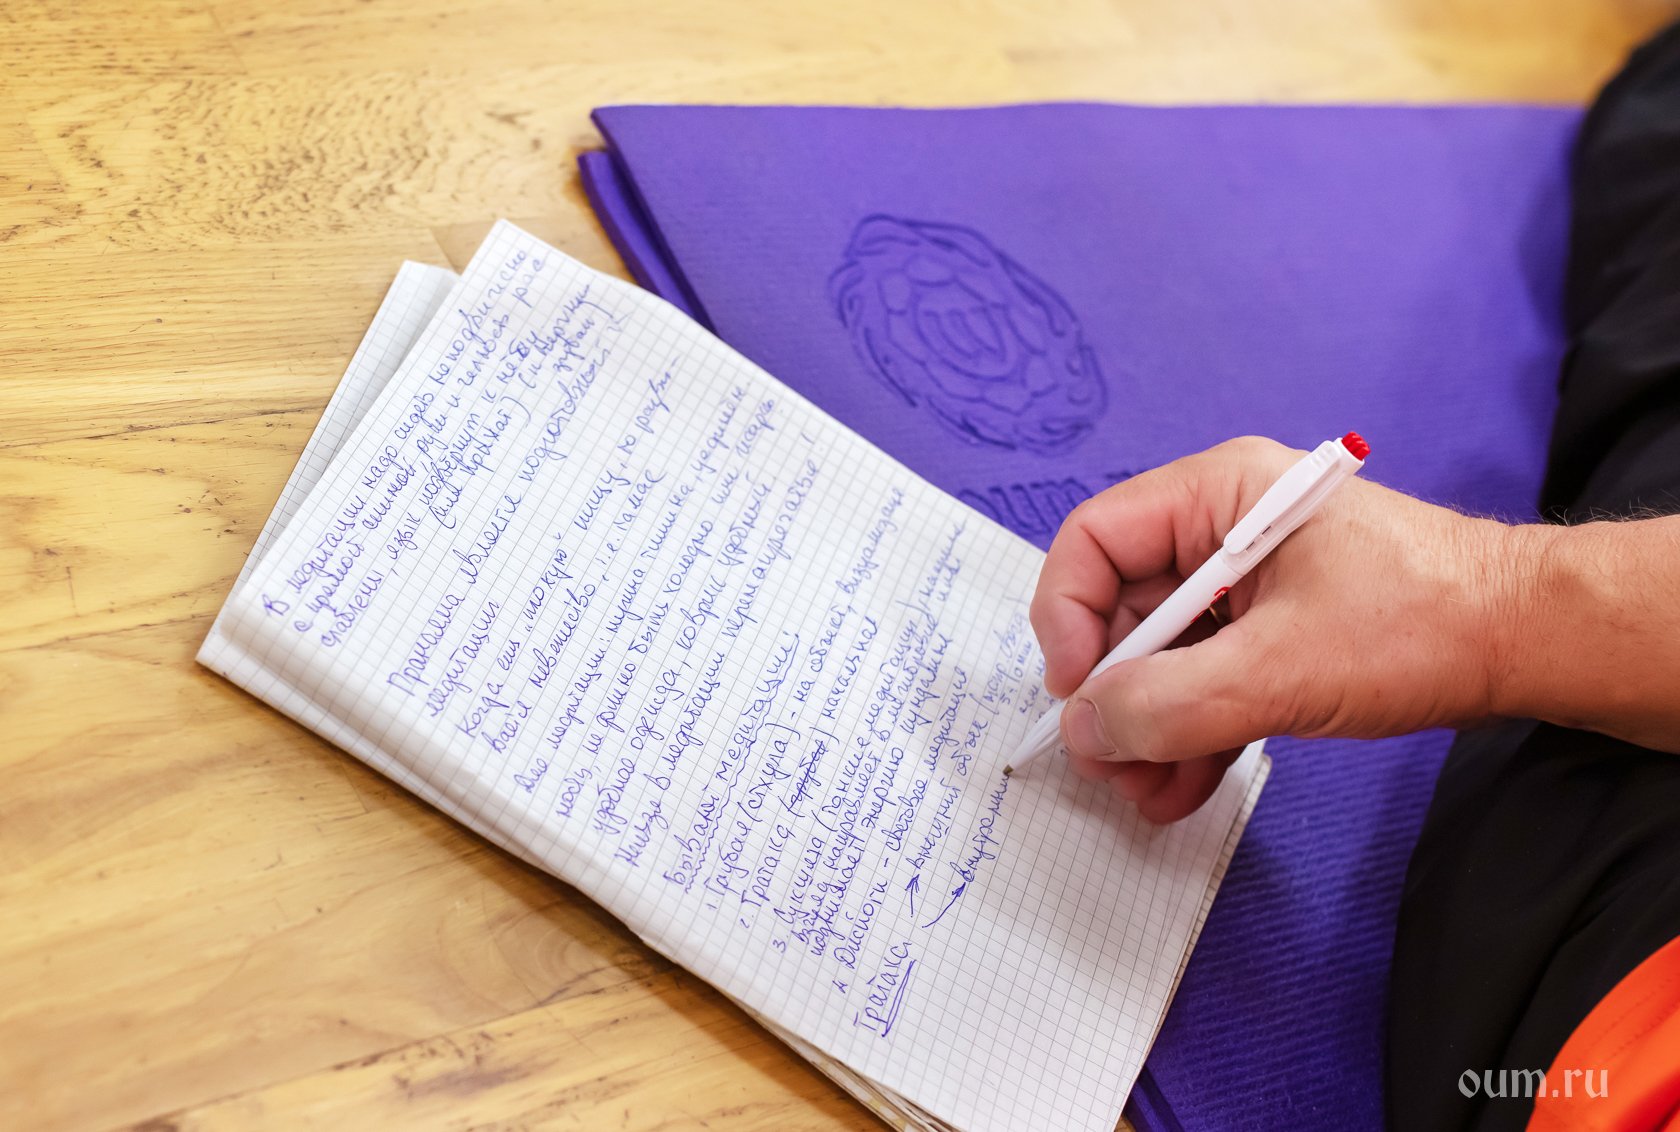 В медитации надо сидеть неподвижно
с прямой спиной, руки и челюсть рас
слаблены, язык подвёрнут к нёбу
(или прижат) (к верхним зубам)
Пранаяма является подготовкой
медитации
Когда ешь "плохую" пищу, то разви-
вается невежество, т.е. тамас
Для медитации нужна тишина, уединён-
ность, не должно быть холодно или жарко
удобная одежда, коврик удобный
Нельзя в медитации перенапрягаться!
Бывают медитации:
1. Грубая (стхула) - на объект, визуализация
2. Тратака (грубая) начальная
3. Сукшма (тонкие медитации)
взгляд направляет в межбровье
поднимает энергию кундалини
4. Дисйоти - световая медитация
Тратака → внешний объект
→ внутренний
oum.ru